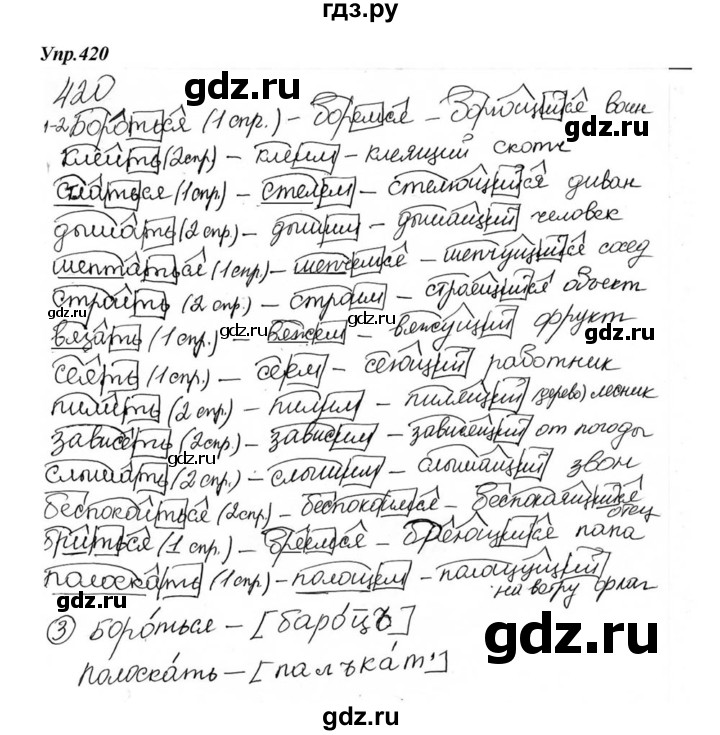 гдз.ру
Упр.420
420
gdz.ru gdz.ru
1-2. Бороться (1 спр.) – боремся – борющийся воин
клеить (2 спр) – клеим – клеящий скотч
стлаться (1 спр.) – стелем – стелющийся диван
дышать (2 спр.) – дышим – дышащий человек
шептаться (1 спр.) – шепчемся – шепчущийся сосед
строить (2 спр.) – строим – строящийся объект
gdz.ru gdz.ru gdz.ru
вязать (1 спр.) – вяжем – вяжущий фрукт
сеять (1 спр.) – сеем – сеющий работник
пилить (2 спр.) – пилим – пилящий (дерево) лесник
зависеть (2 спр.) – зависим – зависящий от погоды
gdz.ru gdz.ru
слышать (2 спр.) – слышим – слышащий звон
беспокоиться (2 спр) – беспокоимся – беспокоящийся отец
бриться (1 спр.) – бреемся – бреющийся папа
полоскать (1 спр.) – полощем – полощущий на ветру флаг
gdz.ru gdz.ru
3 бороться – [бaро́цъ]
полоскать – [палъка́т']
gdz.ru